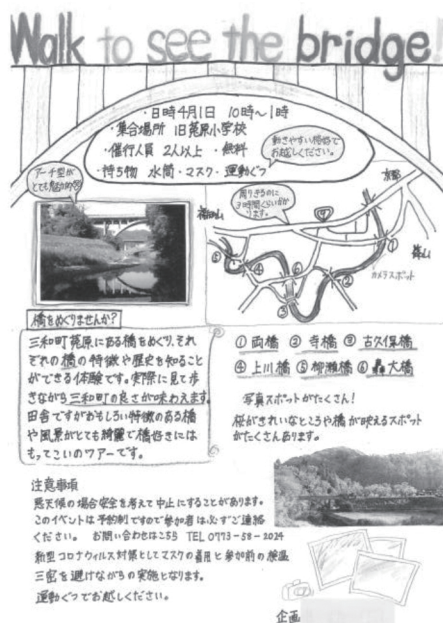 Walk to see the bridge!
・日時4月1日 10時〜1時
・集合場所 旧菟原小学校
・催行人員 2人以上 ・無料
・持ち物 水筒・マスク・運動ぐつ
動きやすい格好で
お越しください。
アーチ型が
とても魅力的
周りきるのに
3時間くらいかかり
ます。
福知山
京都
篠山
カメラスポット
① ② ③ ④ ⑤ ⑥
橋をめぐりませんか?
三和町菟原にある橋をめぐり、それ
ぞれの橋の特徴や歴史を知ること
ができる体験です。実際に見て歩
きながら三和町の良さが味わえます。
田舎ですがおもしろい特徴のある橋
や風景がとても綺麗で橋好きには
もってこいのツアーです。
① 両橋 ② 寺橋 ③ 古久保橋
④ 上川橋 ⑤ 柳瀬橋 ⑥ 大橋
写真スポットがたくさん!
桜がきれいなところや橋が映えるスポット
がたくさんあります。
注意事項
悪天候の場合安全を考えて中止にすることがあります。
このイベントは予約制ですので参加者は必ずご連絡
ください。 お問い合わせはこちら TEL 0773-58-2024
新型コロナウィルス対策としてマスクの着用と参加前の検温
三密を避けながらの実施となります。
運動ぐつでお越しください。
企画